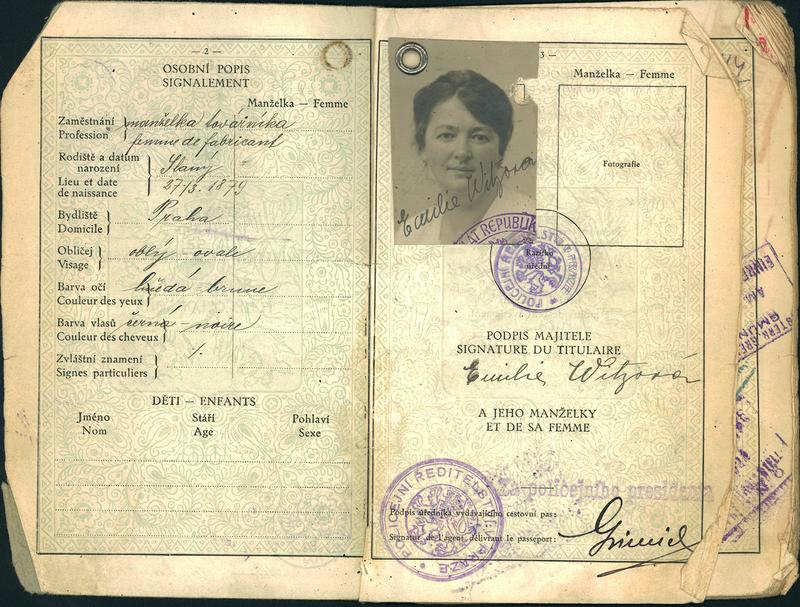 — 2 —
OSOBNÍ POPIS
SIGNALEMENT
Manželka — Femme
Zaměstnání manželka továrníka
Profession femme de fabricant
Rodiště a datum narození Slaný
Lieu et date de naissance 27/3. 1879
Bydliště Praha
Domicile
Obličej oblý ovale
Visage
Barva očí hnědá brune
Couleur des yeux
Barva vlasů černá noire
Couleur des cheveux
Zvláštní znamení /.
Signes particuliers
DĚTI — ENFANTS
Jméno Stáří Pohlaví
Nom Age Sexe
3 —
Manželka — Femme
Fotografie
Emilie Witzová
Razítko
úřední
PODPIS MAJITELE
SIGNATURE DU TITULAIRE
Emilie Witzová
A JEHO MANŽELKY
ET DE SA FEMME
Za policejního presidenta
Podpis úředníka vydávajícího cestovní pas:
Signatur de l'agent délivrant le passeport:
POLICEJNÍ ŘEDITELSTVÍ V PRAZE